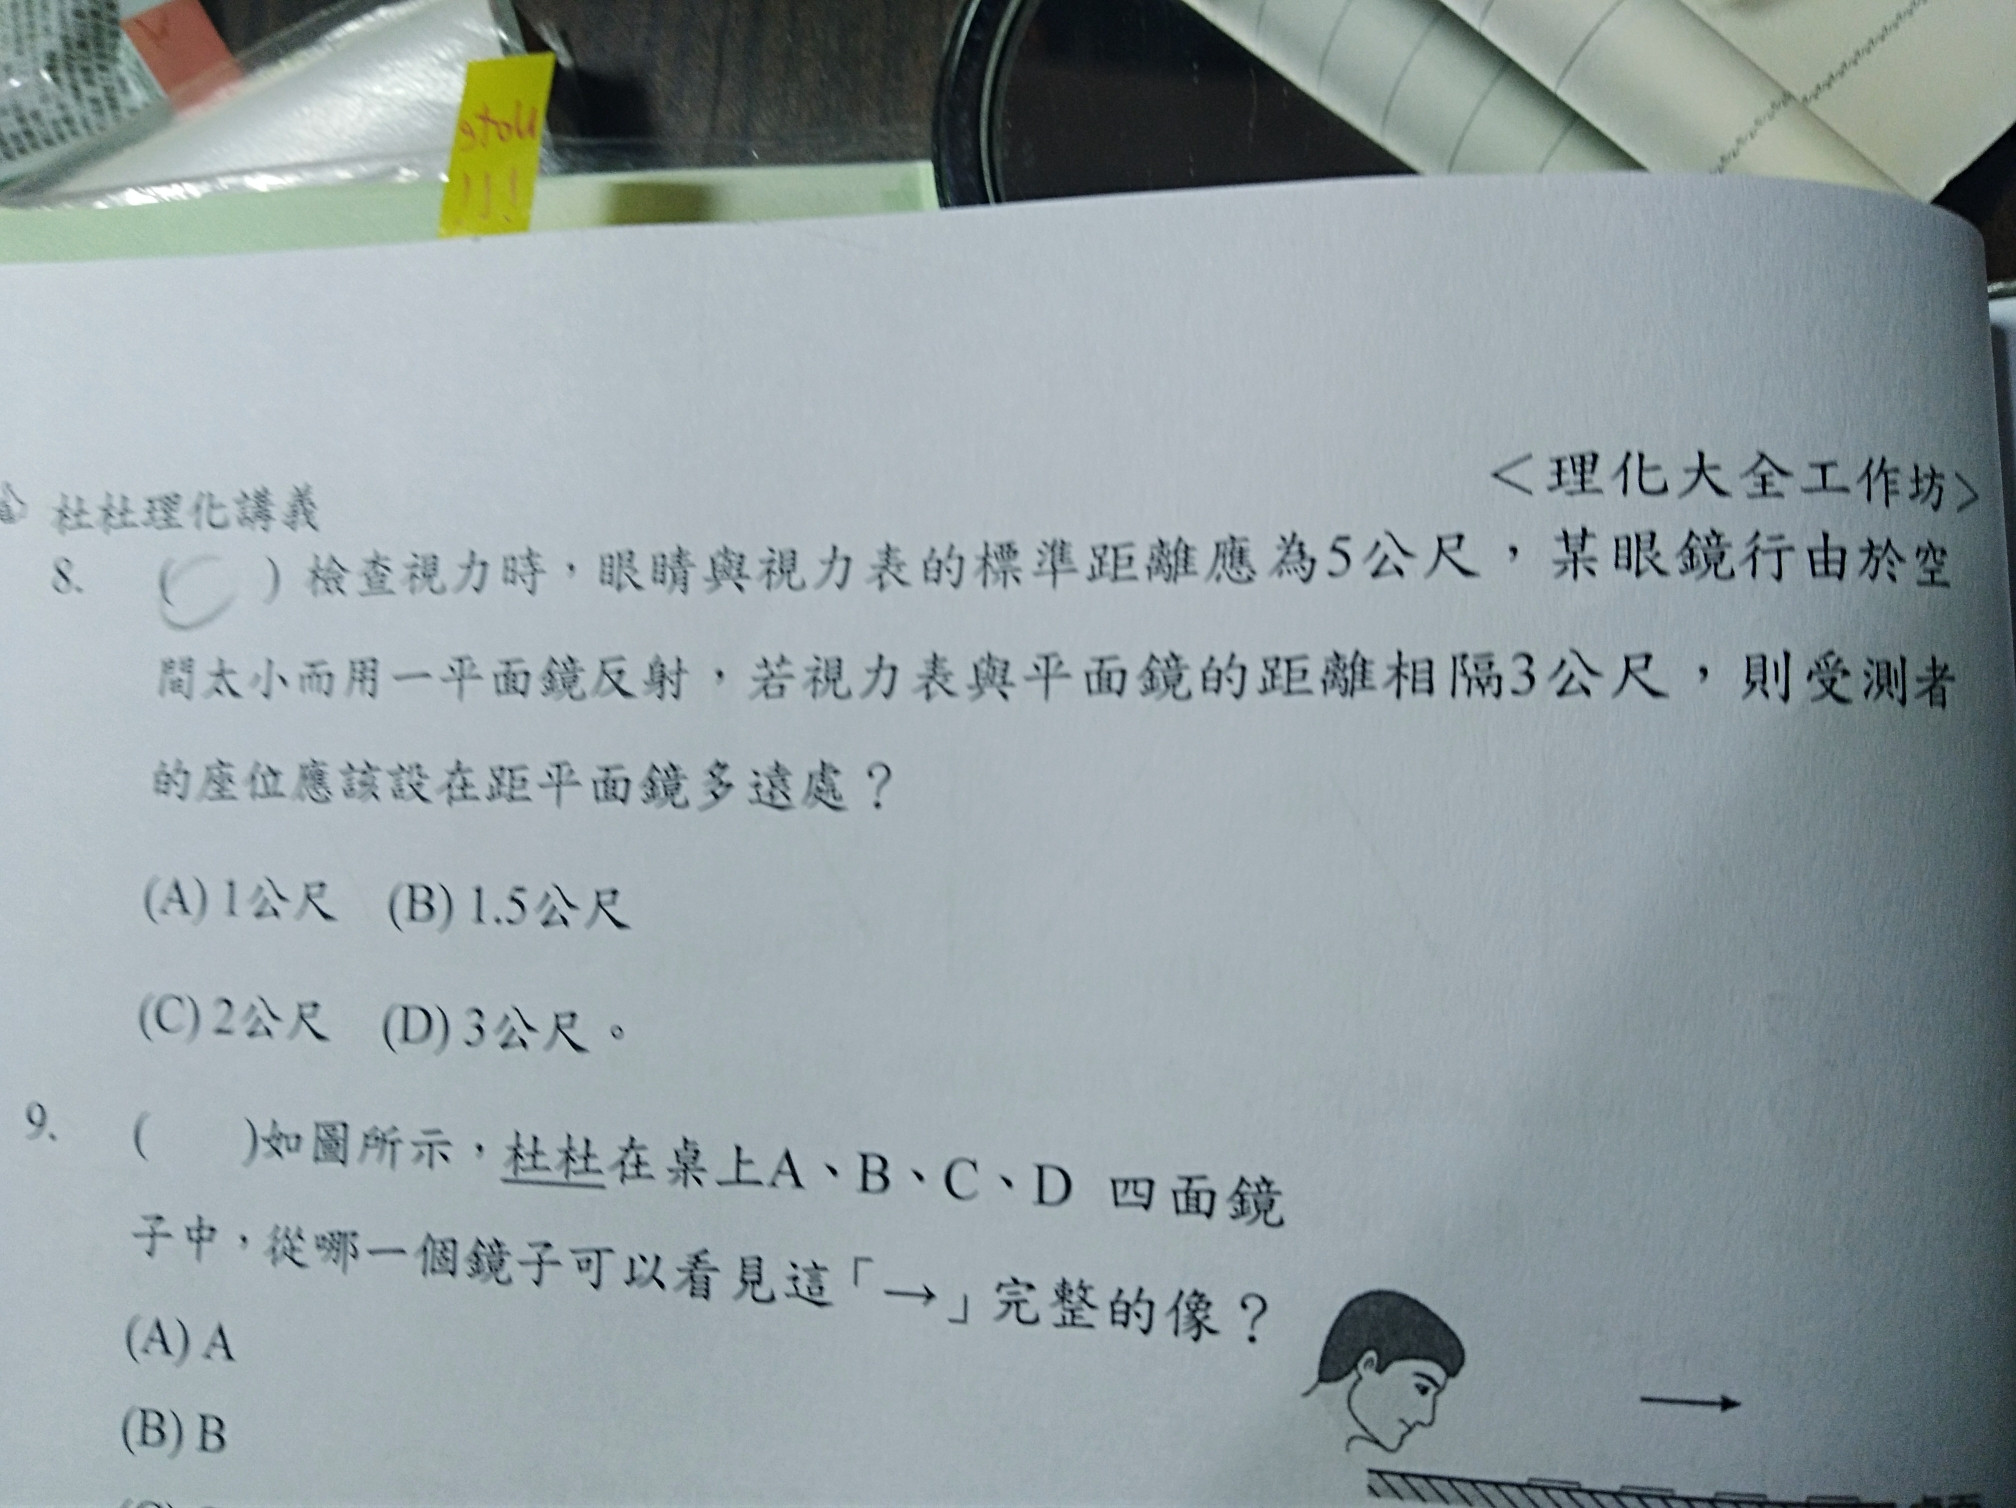 <理化大全工作坊>
杜杜理化講義
8. ( ) 檢查視力時，眼睛與視力表的標準距離應為5公尺，某眼鏡行由於空
間太小而用一平面鏡反射，若視力表與平面鏡的距離相隔3公尺，則受測者
的座位應該設在距平面鏡多遠處？
(A) 1公尺 (B) 1.5公尺
(C) 2公尺 (D) 3公尺。
9. ( )如圖所示，杜杜在桌上A、B、C、D 四面鏡
子中，從哪一個鏡子可以看見這「→」完整的像？
(A) A
(B) B